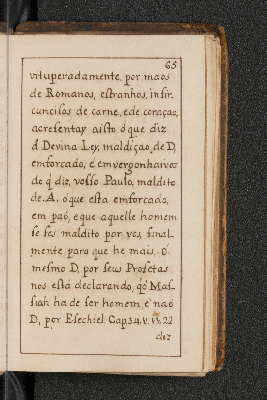 65
vituperadamente, por maos
de Romanos, estranhos, insir
cuncisos de carne, ede coraçaõ,
acresentay aisto óque diz
á Devina Ley, maldiçaõ, de D,
emforcado, é emvergonhaivos
de q̃ diz, vosso Paulo, maldito
de .A. óque esta emforcado,
em paó, e que aquelle homem
se fes maldito por vos, final
mente, para que he mais, ó
mesmo D, por seus Profetas
nos está declarando, q̃ ó Mas-
siah ha de ser homem, é naó
D, por Esechiel: Cap. 34. v. 22
diz